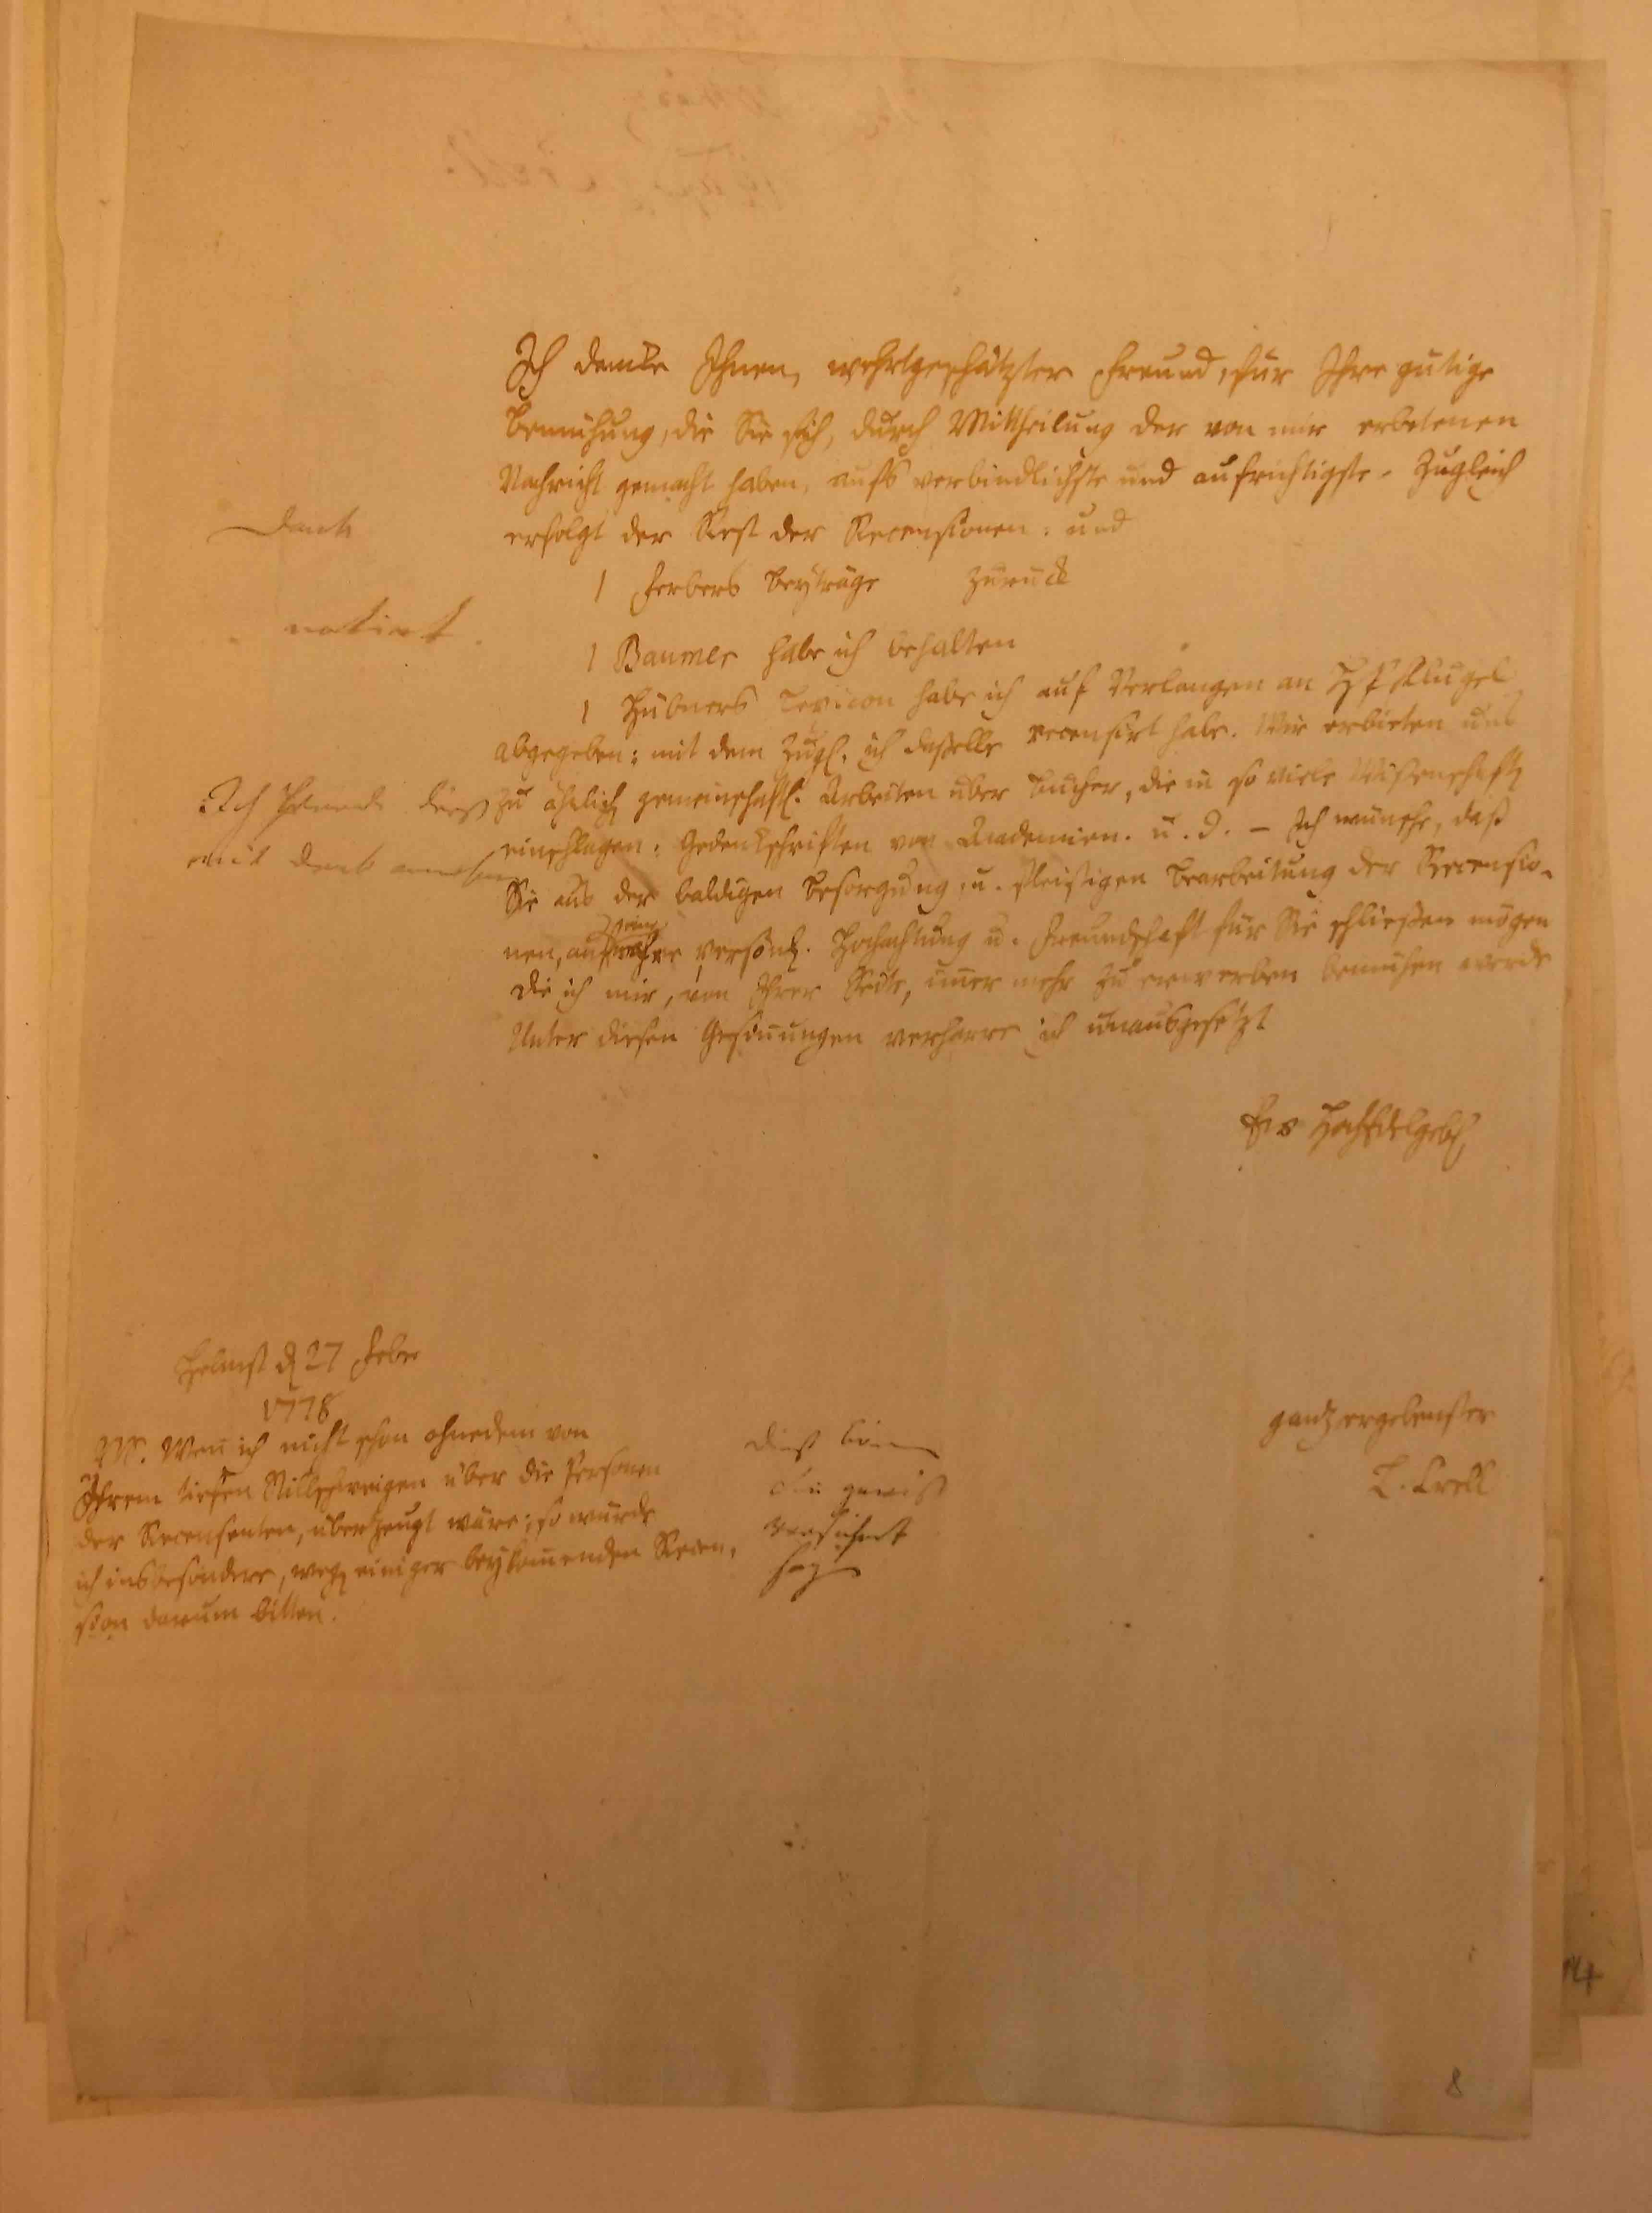 Ich danke Ihnen, wehrtgeschätzter Freund, für Ihre gütige
Bemühung, die Sie sich, durch Mittheilung der von mir erbetenen
Nachricht gemacht haben, aufs verbindlichste und aufrichtigste. Zugleich
erfolgt der Rest der Recensionen: und
Dank
1 Ferbers Beyträge zurück
notirt
1 Baumer habe ich behalten
1 Hübners Lexicon habe ich auf Verlangen an Klügel
abgegeben: mit dem zugl. ich dasselbe recensirt habe. Wir erbieten uns
zu ähnlichen gemeinschaftl. Arbeiten über Bücher, die in so viele Wissenschaften
Ich werde dies
mit Dank annehmen
einschlagen: Gedenkschriften von Academien. u. d. – Ich wünsche, daß
Sie aus der baldigen Besorgung, u. fleissigen Bearbeitung der Recensio-
nen, auf meine persönl. Hochachtung u. Freundschaft für Sie schließen mögen
die ich mir, von Ihrer Seite, immer mehr zu erwerben bemühen werde
Unter diesen Gesinnungen verharre ich unausgesetzt
Ew HochEdelgeb.
Helmst d 27 Febr
1778
ganz ergebenster
L. Crell
NS. Wenn ich nicht schon ohnedem von
Ihrem tiefen Stillschweigen über die Personen
der Recensenten, überzeugt wäre; so würde
ich insbesondere, wegen einiger beykommenden Recen-
sion darum bitten.
dies können
Sie gewiß
versichert
seyn
8
14